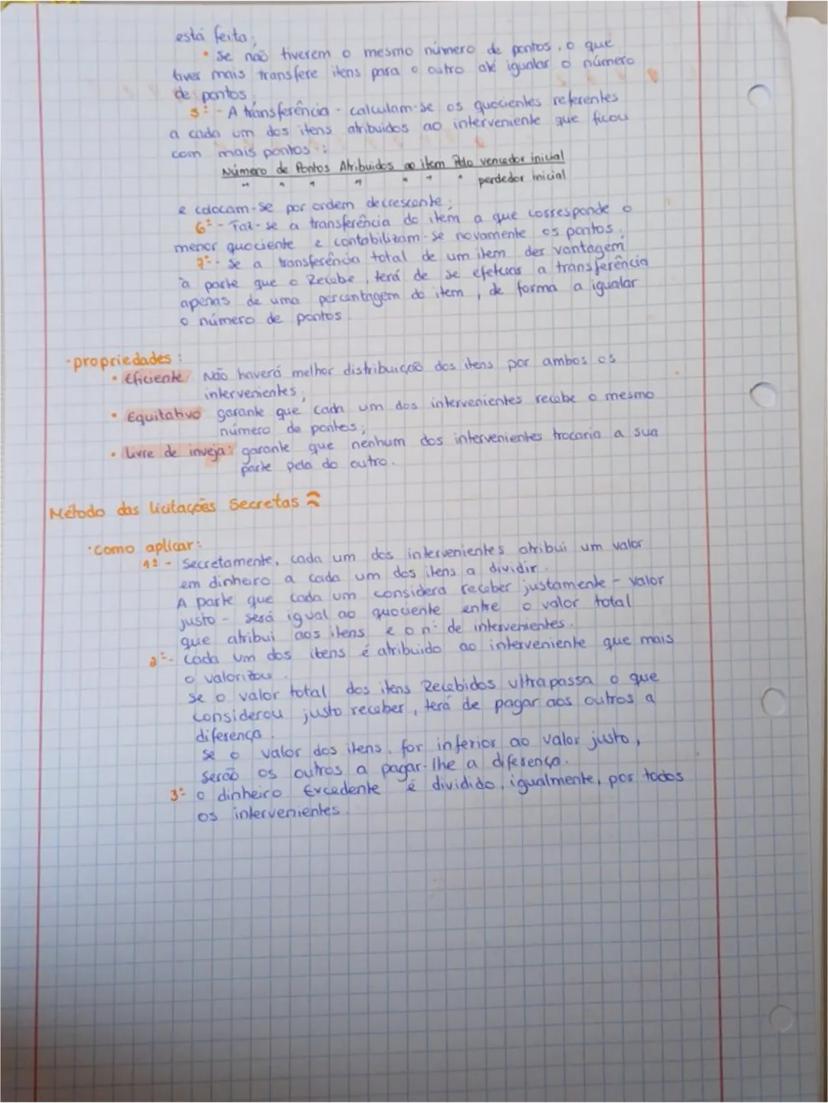 está feita;
• Se não tiverem o mesmo número de pontos, o que
tiver mais transfere itens para o outro até igualar o número
de pontos.
5º - A transferência - calculam-se os quocientes referentes
a cada um dos itens atribuidos ao interveniente que ficou
com mais pontos:
Número de Pontos Atribuidos ao item Pelo vencedor inicial
" " " " " " " perdedor inicial
e colocam-se por ordem decrescente;
6º - Faz-se a transferência do item a que corresponde o
menor quociente e contabilizam-se novamente os pontos.
7º - Se a transferência total de um item der vantagem
à parte que o Recebe, terá de se efetuar a transferência
apenas de uma percentagem do item, de forma a igualar
o número de pontos.
• propriedades:
• Eficiente: Não haverá melhor distribuição dos itens por ambos os
intervenientes;
• Equitativo: garante que cada um dos intervenientes recebe o mesmo
número de pontos;
• Livre de inveja: garante que nenhum dos intervenientes trocaria a sua
parte pela do outro.
Método das licitações Secretas
• como aplicar:
1º - Secretamente, cada um dos intervenientes atribui um valor
em dinheiro a cada um dos itens a dividir.
A parte que cada um considera receber justamente - valor
justo - será igual ao quociente entre o valor total
que atribui aos itens e o nº de intervenientes.
2º - Cada um dos itens é atribuido ao interveniente que mais
o valorizou.
Se o valor total dos itens Recebidos ultrapassa o que
considerou justo receber, terá de pagar aos outros a
diferença.
Se o valor dos itens, for inferior ao valor justo,
serão os outros a pagar-lhe a diferença.
3º o dinheiro Excedente é dividido, igualmente, por todos
os intervenientes.